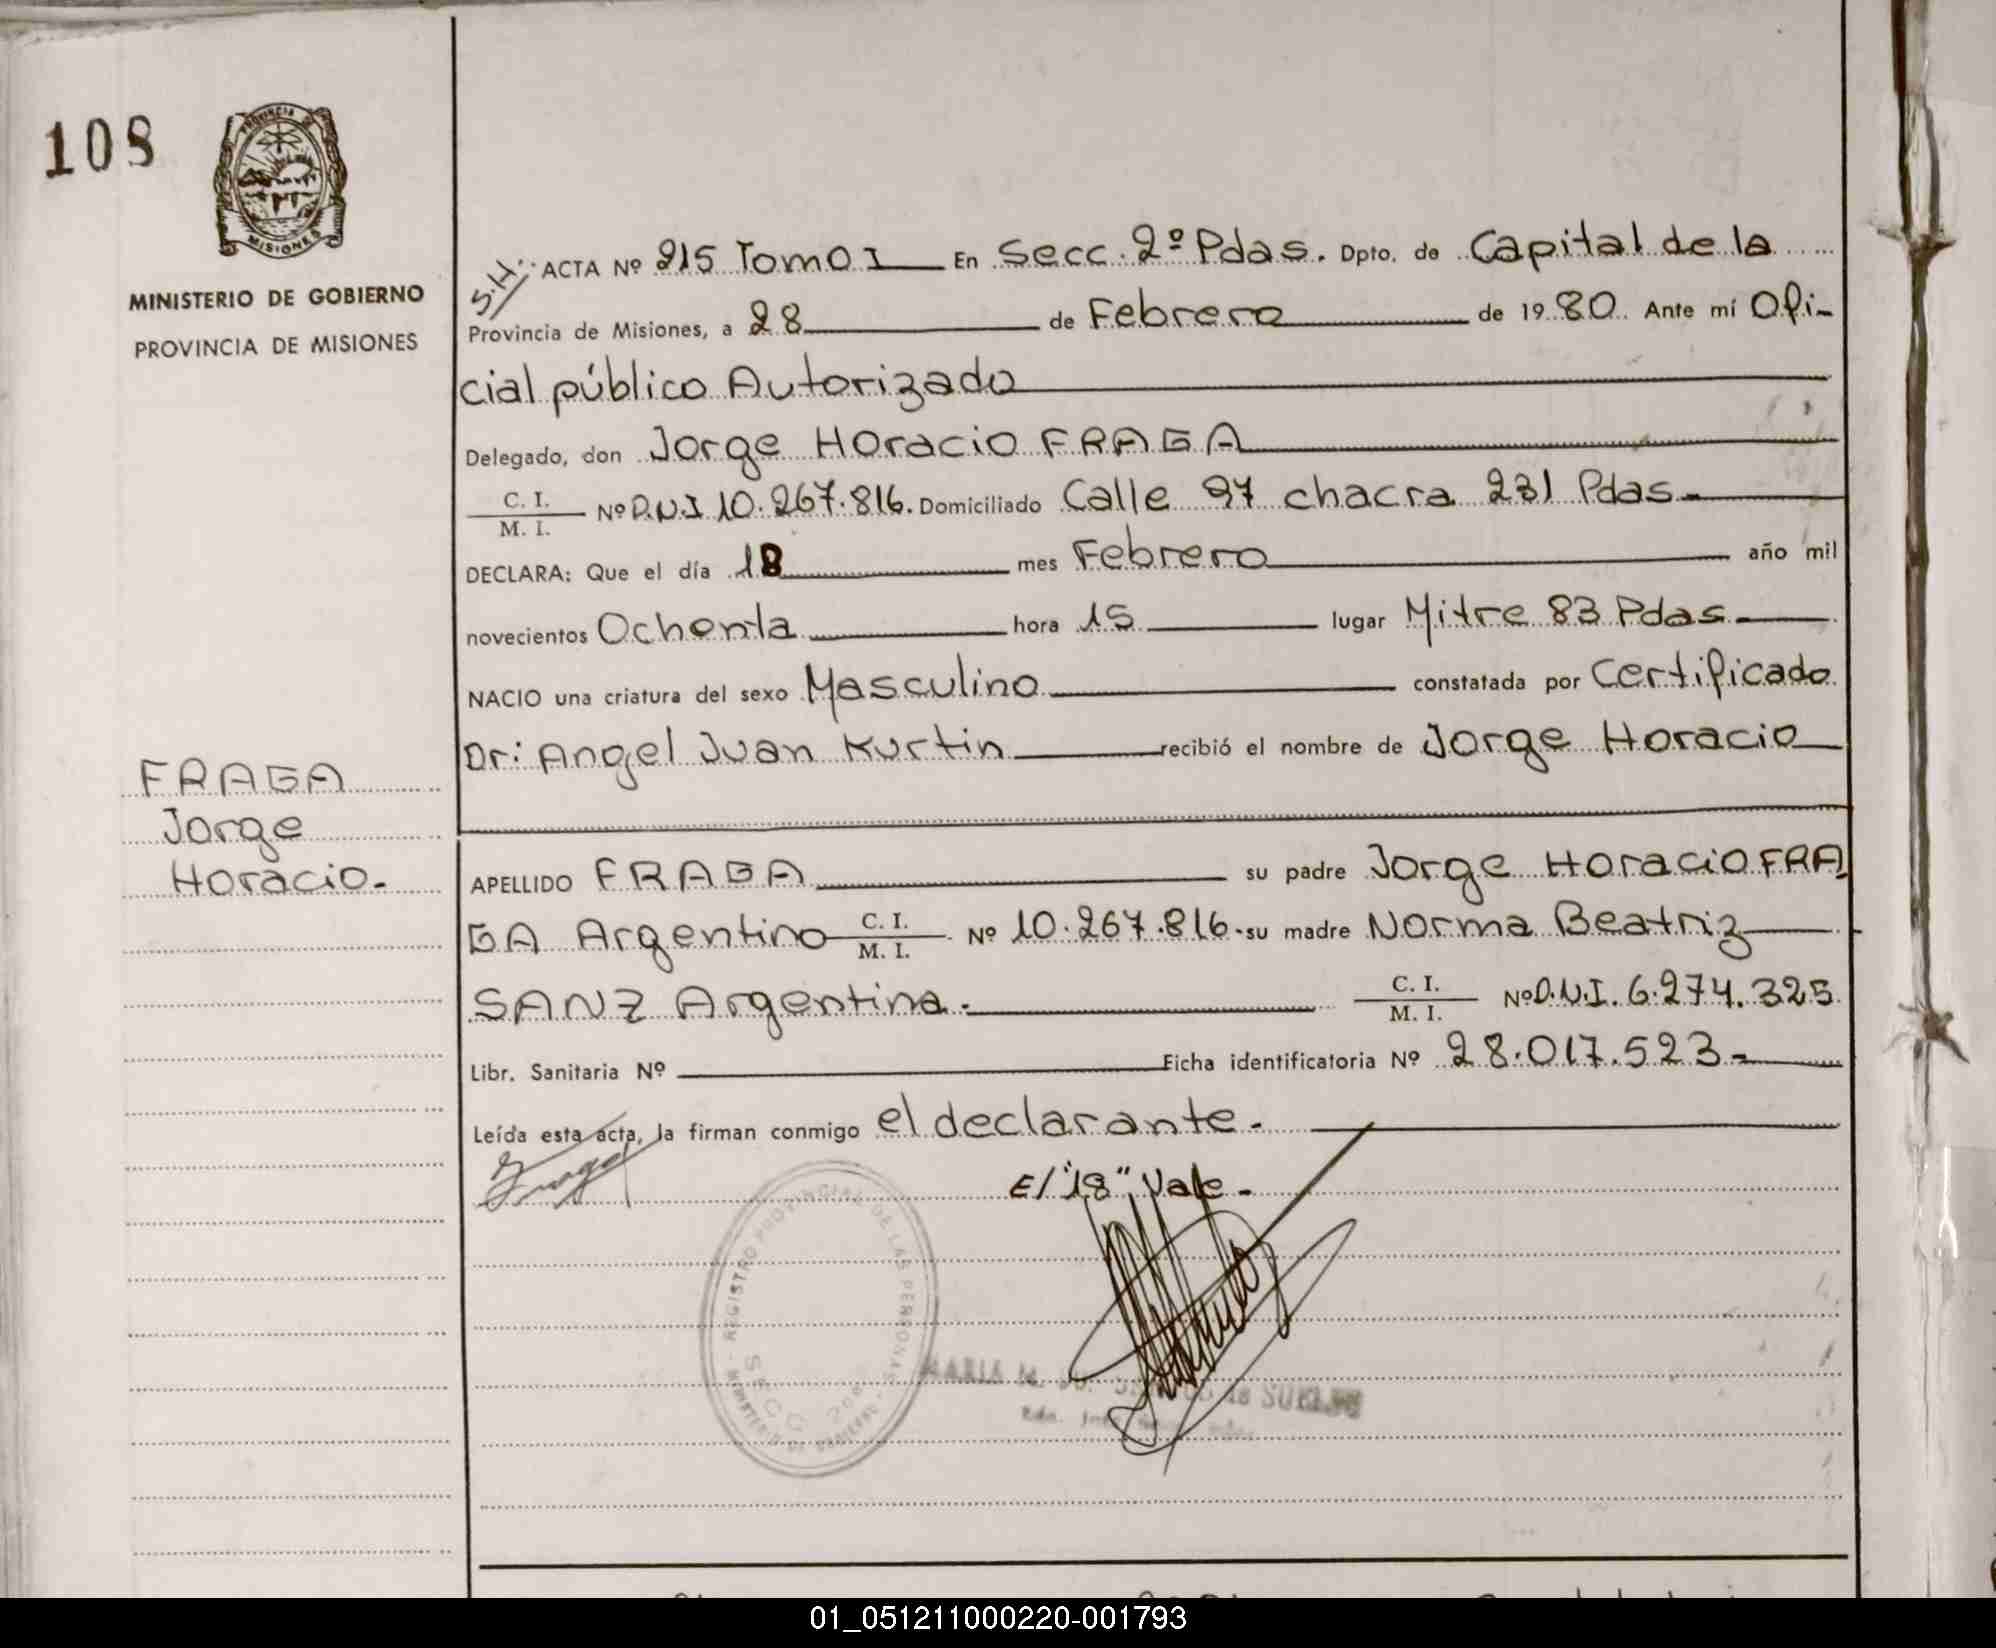 108
PROVINCIA DE
MISIONES
MINISTERIO DE GOBIERNO
PROVINCIA DE MISIONES
S.H: ACTA Nº 215 Tomo I En Secc. 2º Pdas. Dpto. de Capital de la
Provincia de Misiones, a 28 de Febrero de 1980. Ante mí Ofi-
cial público Autorizado
Delegado, don Jorge Horacio FRAGA
C. I.
M. I. Nº D.N.I 10.267.816. Domiciliado Calle 97 chacra 231 Pdas.-
DECLARA: Que el día 18 mes Febrero año mil
novecientos Ochenta hora 15 lugar Mitre 83 Pdas.
NACIO una criatura del sexo Masculino constatada por Certificado
Dr: Angel Juan Kurtin recibió el nombre de Jorge Horacio
FRAGA
Jorge
Horacio.-
APELLIDO FRAGA su padre Jorge Horacio FRA
GA Argentino C. I.
M. I. Nº 10.267.816.su madre Norma Beatriz
SANZ Argentina.- C. I.
M. I. Nº D.N.I. 6.274.325
Libr. Sanitaria Nº Ficha identificatoria Nº 28.017.523-
Leída esta acta, la firman conmigo el declarante.-
Fraga
E/"18" Vale.-
REGISTRO PROVINCIAL DE LAS PERSONAS
MINISTERIO DE GOBIERNO
SECC 2da
MARIA M.
01_051211000220-001793